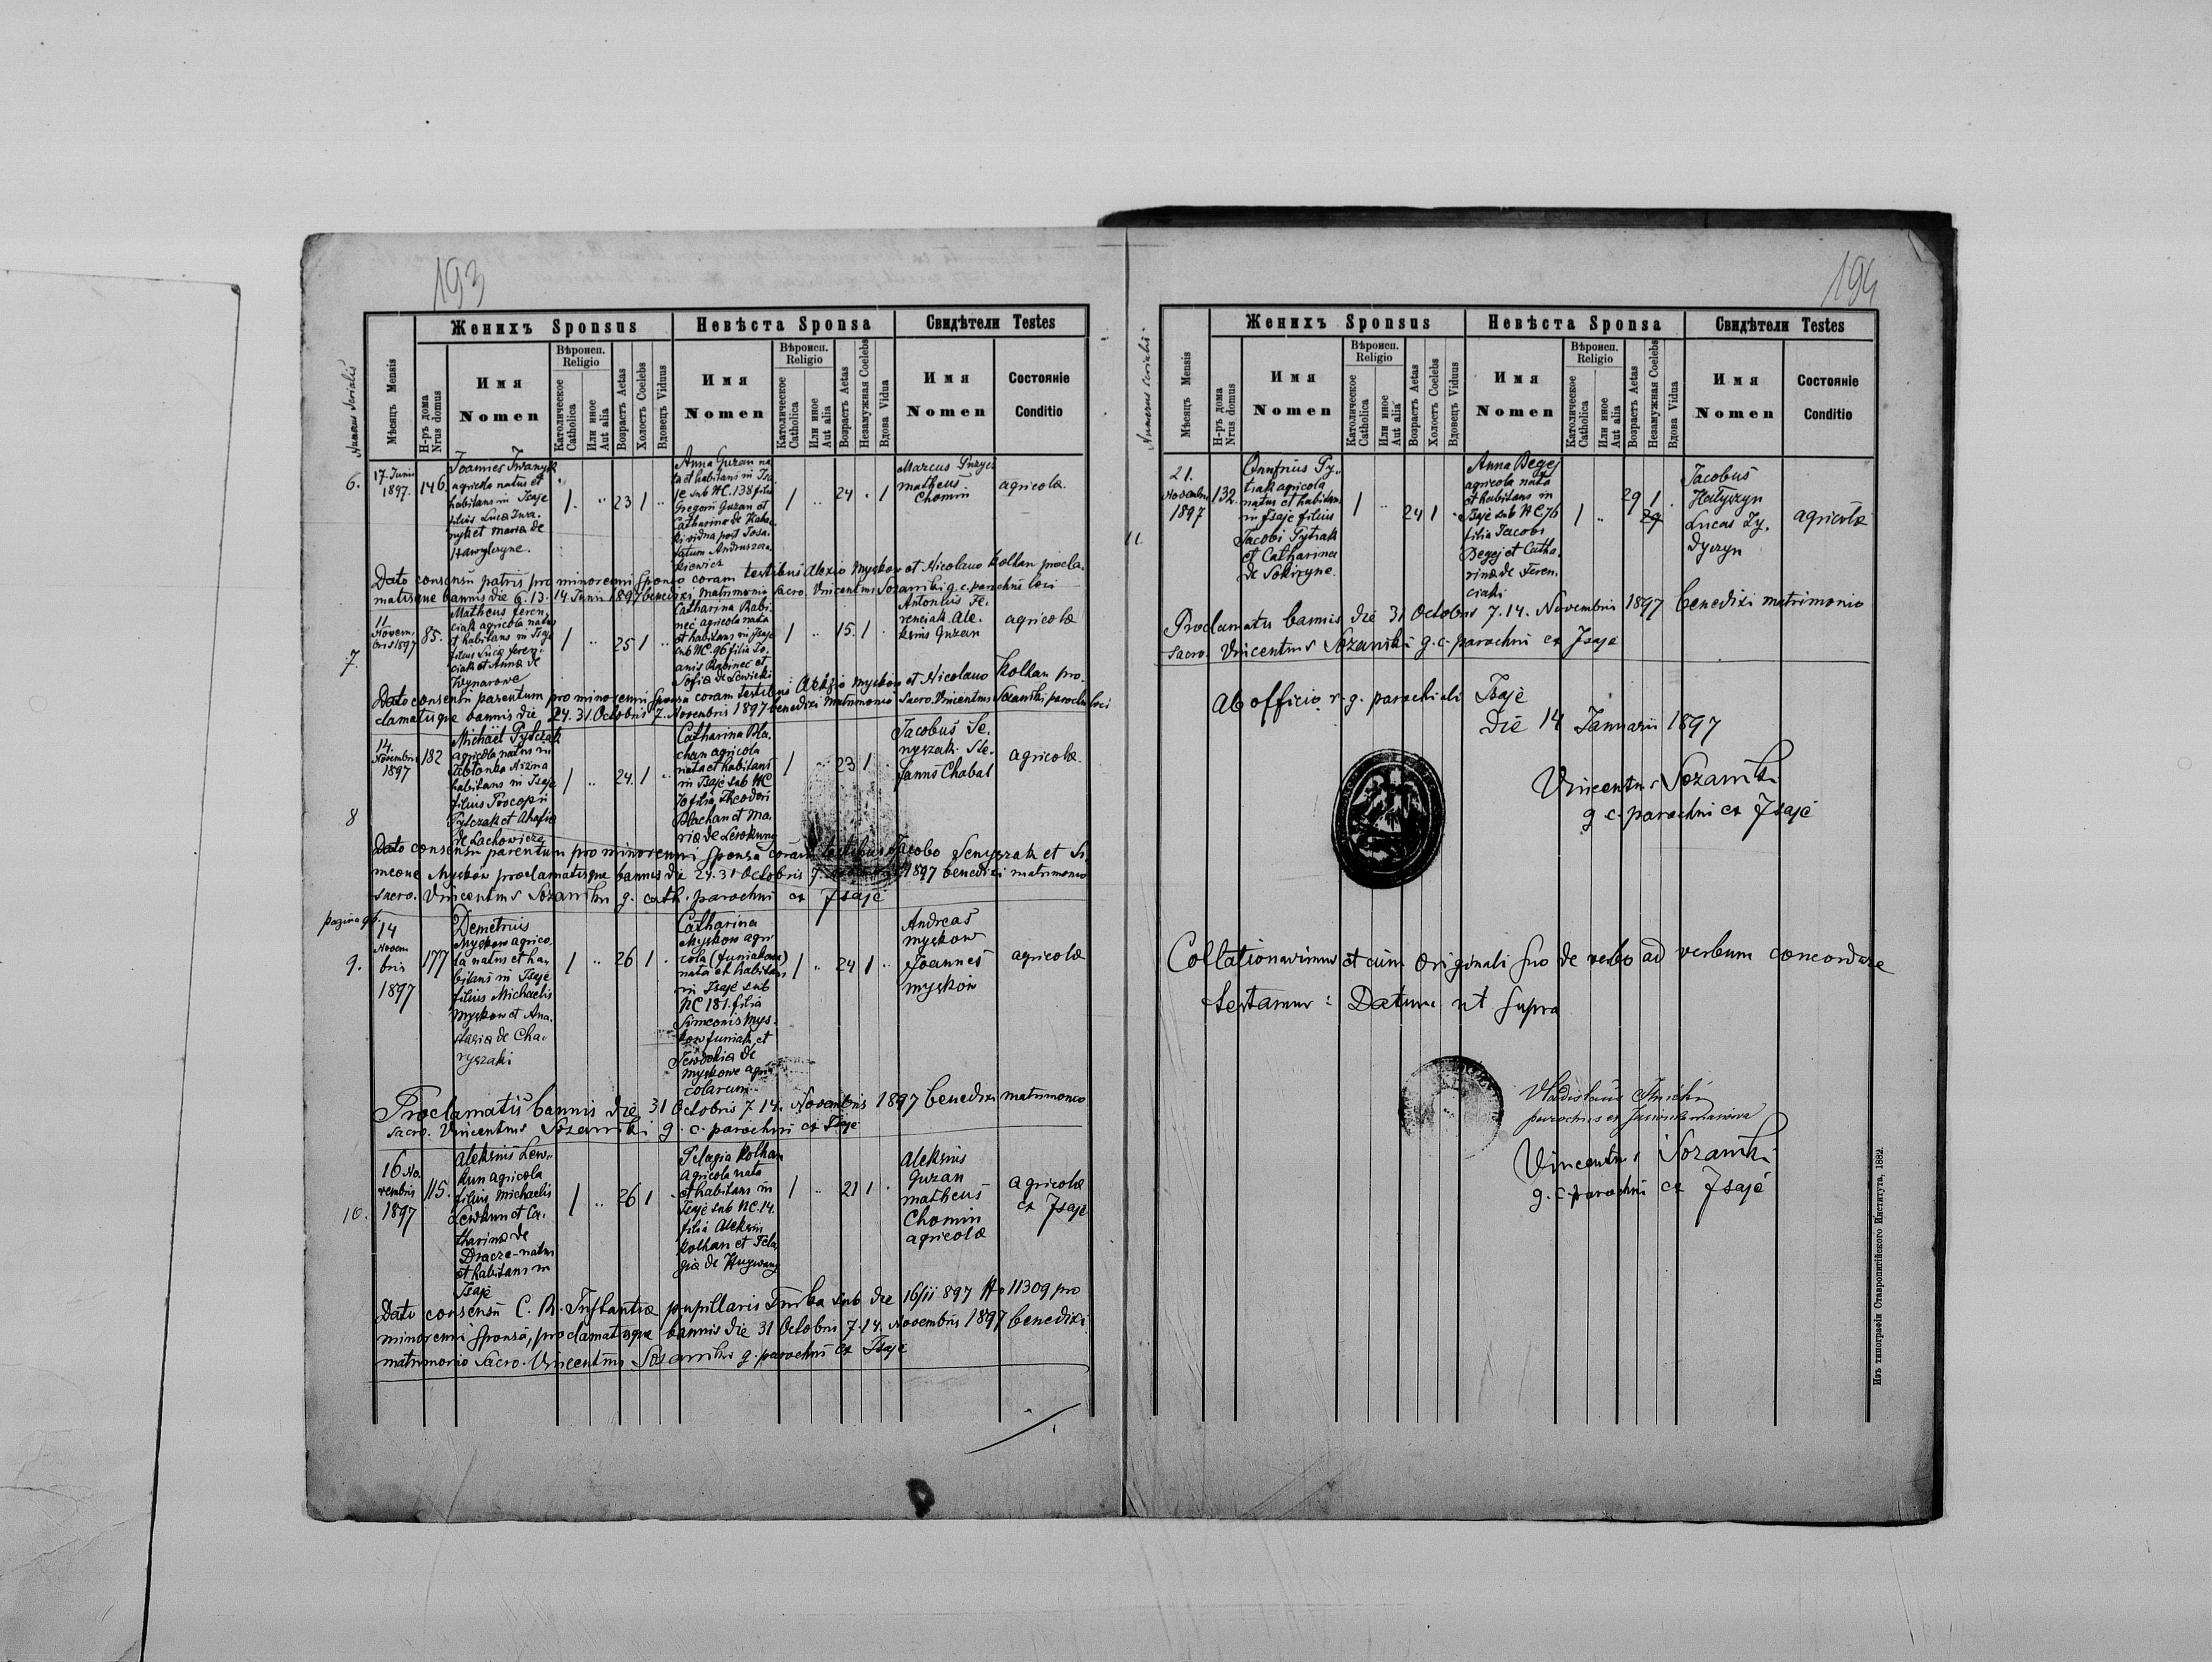 193
Numerus Serialis
Мѣсяць Mensis
Н-ръ дома Nrus domus
Женихъ Sponsus
Имя
Nomen
Вѣроисп.
Religio
Католическое Catholica
Или иное Aut alia
Возрастъ Aetas
Холостъ Coelebs
Вдовецъ Viduus
Невѣста Sponsa
Имя
Nomen
Вѣроисп.
Religio
Католическое Catholica
Или иное Aut alia
Возрастъ Aetas
Незамужная Coelebs
Вдова Vidua
Свидѣтели Testes
Имя
Nomen
Состояніе
Conditio
6.
17. Junii
1897.
146
Joannes Iwanyk
agricola natus et
habitans in Isaje
filius Luca Iwa-
nyk et Maria de
1 23 1
Anna Guzan na
ta et habitans in Isa-
je sub NC. 138 filia
Gregorii Guzan et
Catharina de
vidua post Josa-
fatum Andruszcza-
kiewicz
1 24 1
Marcus
Matheus
Chomin
agricolæ
Dato consensu patris pro minorenni sponso coram testibus Alexio Myckow et Nicolauo Kolhan procla-
matisque bannis die 6. 13. 14. Junii 1897 benedixi matrimonio Sacro. Vincentius Sozański g. c. parochus loci
7.
11
Novem-
bris 1897
85.
Matheus Feren-
ciak agricola natus
et habitans in Isaje
filius Luca Feren-
ciak et Anna de
1 25 1
Catharina Rabi-
nec agricola nata
et habitans in Isaje
sub NC. 96 filia Jo-
anis Rabinec et
Sofia de Lewicki
1 15. 1
Antonius Fe-
renciak. Ale-
ksius Guzan
agricolæ
Dato consensu parentum pro minorenni sponsa coram testibus Alekzio Myckow et Nicolauo Kolhan pro-
clamatisque bannis die 24. 31 Octobris 7. Novembris 1897 benedixi matrimonio Sacro. Vincentius Sozański parochus loci
8
14.
Novembris
1897
182
Michael Pytczak
agricola natus in
Jabłonka
habitans in Isaje
filius Procopii
Pytczak et Ahafia
de Lachowicz
1 24. 1
Catharina Bla-
chan agricola
nata et habitans
in Isaje sub NC
70 filia Theodori
Blachan et Ma-
ria de Lewkun
1 23 1
Jacobus Se-
nyszak. Ste-
fanus Chabal
agricolæ
Dato consensu parentum pro minorenni sponsa coram testibus Jacobo Senyszak et Si-
meone Myckow proclamatisque bannis die 24. 31 Octobris 7. 1897 benedixi matrimonio
Sacro. Vincentius Sozański g. cath. parochus ex Isaje
pagina 96.
9.
14
Novem-
bris
1897
177
Demetrius
Myckow agrico-
la natus et ha-
bitans in Isaje
filius Michaelis
Myckow et Ana-
stasia de Cha-
ryszaki
1 26 1
Catharina
Myckow agri-
cola (Funiakow)
nata et habitans
in Isaje sub
NC 181. filia
Simeonis Mys-
kow Funiak et
Jewdokia de
Myckowe agri-
colarum
1 24 1
Andreas
Myckow
Joannes
Myckow
agricolæ
Proclamatis bannis die 31 Octobris 7. 14. Novembris 1897 benedixi matrimonio
Sacro. Vincentius Sozański g. c. parochus ex Isaje
10.
16 No-
vembris
1897
115.
Aleksius Lew-
kun agricola
filius Michaelis
Lewkun et Ca-
tharina de
Dracze - natus
et habitans in
Isaje
1 26 1
Pelagia Kolhan
agricola nata
et habitans in
Isaje sub NC. 14.
filia Aleksii
Kolhan et Pela-
gia de
1 21 1
Aleksius
Guzan
Matheus
Chomin
agricolæ
agricolæ
ex Isaje
Dato consensu C. R. Instantiæ pupillaris Turka sub die 16/11 897 No 11309 pro
minorenni sponsa, proclamatisque bannis die 31 Octobris 7. 14. Novembris 1897 benedixi
matrimonio Sacro. Vincentius Sozański g. parochus ex Isaje
194
Numerus serialis
Мѣсяць Mensis
Н-ръ дома Nrus domus
Женихъ Sponsus
Имя
Nomen
Вѣроисп.
Religio
Католическое Catholica
Или иное Aut alia
Возрастъ Aetas
Холостъ Coelebs
Вдовецъ Viduus
Невѣста Sponsa
Имя
Nomen
Вѣроисп.
Religio
Католическое Catholica
Или иное Aut alia
Возрастъ Aetas
Незамужная Coelebs
Вдова Vidua
Свидѣтели Testes
Имя
Nomen
Состояніе
Conditio
11
21.
Novembris
1897
132.
Onufrius Py-
tiak agricola
natus et habitans
in Isaje filius
Jacobi Pytiak
et Catharina
de Sokiryne
1 24 1
Anna Degej
agricola nata
et habitans in
Isaje sub NC 76
filia Jacobi
Degej et Catha-
rina de Feren-
ciaki
1 29 1
29
Jacobus
Hałyszyn
Lucas Zy-
dyczyn
agricolæ
Proclamatis bannis die 31 Octobris 7. 14. Novembris 1897 benedixi matrimonio
Sacro. Vincentius Sozański g. c. parochus ex Isaje
Ab officio r. g. parochiali Isaje
Die 14 Januarii 1897
Vincentius Sozański
g. c. parochus ex Isaje
Collationavimus et cum originali suo de verbo ad verbum concordare
testamur: Datum ut supra
Vladislaus
parochus ex
Vincentius Sozański
g. c. parochus ex Isaje
Изъ типографіи Ставропигійского Института, 1882.